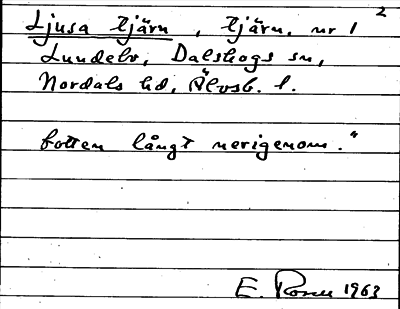 2
Ljusa tjärn, tjärn, nr 1
Lundebo, Dalskogs sn,
Nordals hd, Älvsb. l.
botten långt nerigenom."
E. 1963